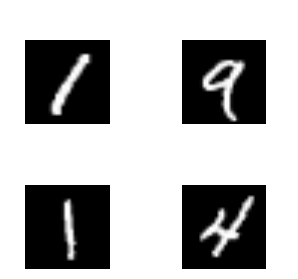 1 9
1 4